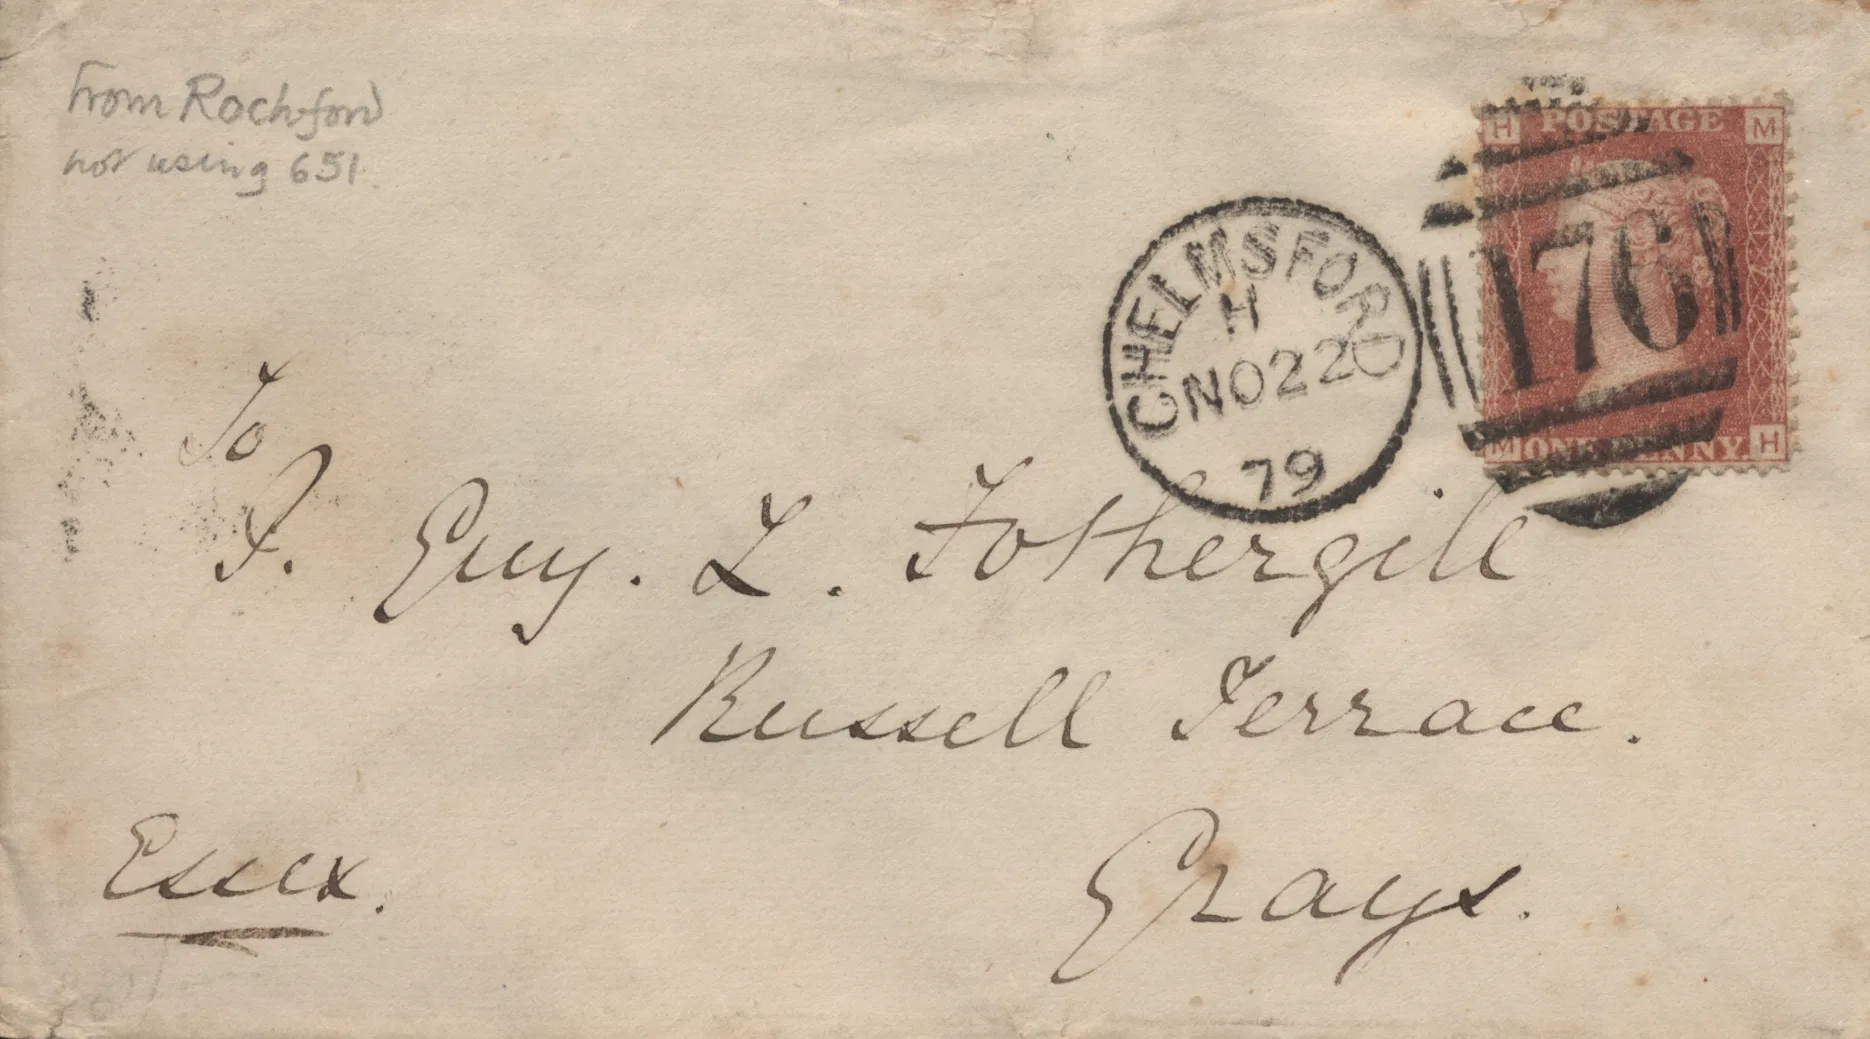 From Rochford
not using 651.
H POSTAGE M
176
CHELMSFORD
H
NO22
79
M ONE PENNY H
To
J. Guy. L. Fothergill
Russell Terrace.
Grays.
Essex.